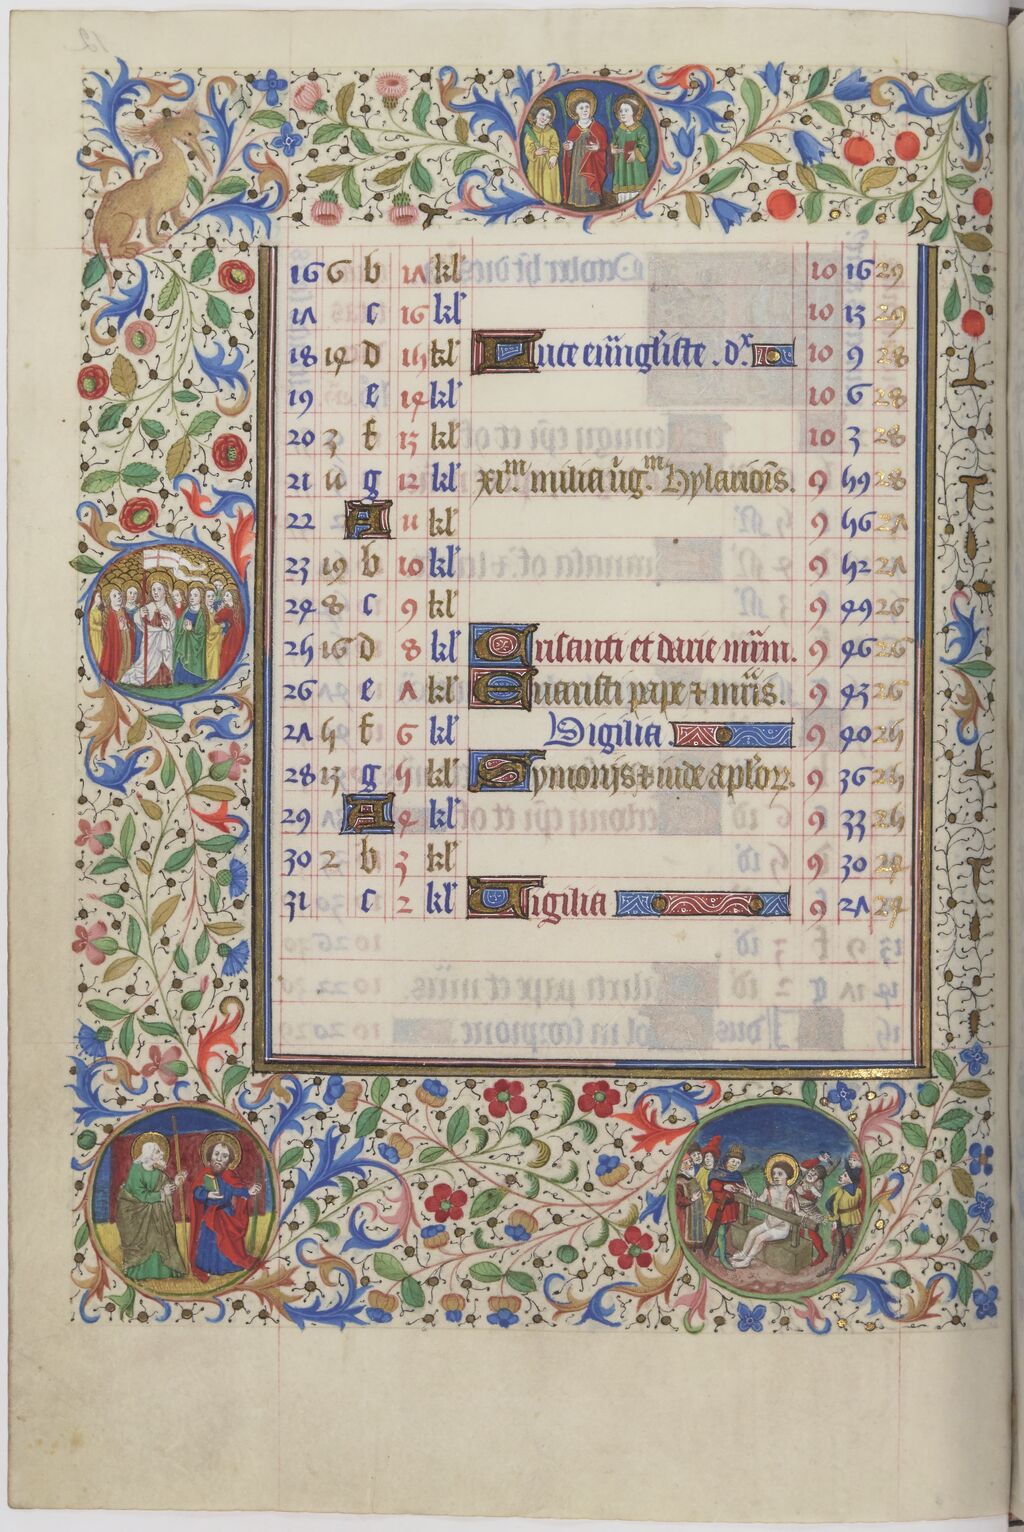 16 6 b 17 kl' 10 16 29
17 c 16 kl' 10 13 29
18 14 d 15 kl' Luce eu̅ngl'iste . dx. 10 9 28
19 e 14 kl' 10 6 28
20 3 f 13 kl' 10 3 28
21 11 g 12 kl' xi.m milia u'g.m hylario̅is. 9 59 28
22 A 11 kl' 9 56 27
23 19 b 10 kl' 9 52 27
24 8 c 9 kl' 9 49 26
25 16 d 8 kl' Crisanti et darie mr̅m. 9 46 26
26 e 7 kl' Euaristi pape & mr̅is. 9 43 26
27 5 f 6 kl' Vigilia. 9 40 25
28 13 g 5 kl' Symonis & iude ap'lorꝝ. 9 36 25
29 A 4 kl' 9 33 25
30 2 b 3 kl' 9 30 24
31 c 2 kl' Vigilia 9 27 24